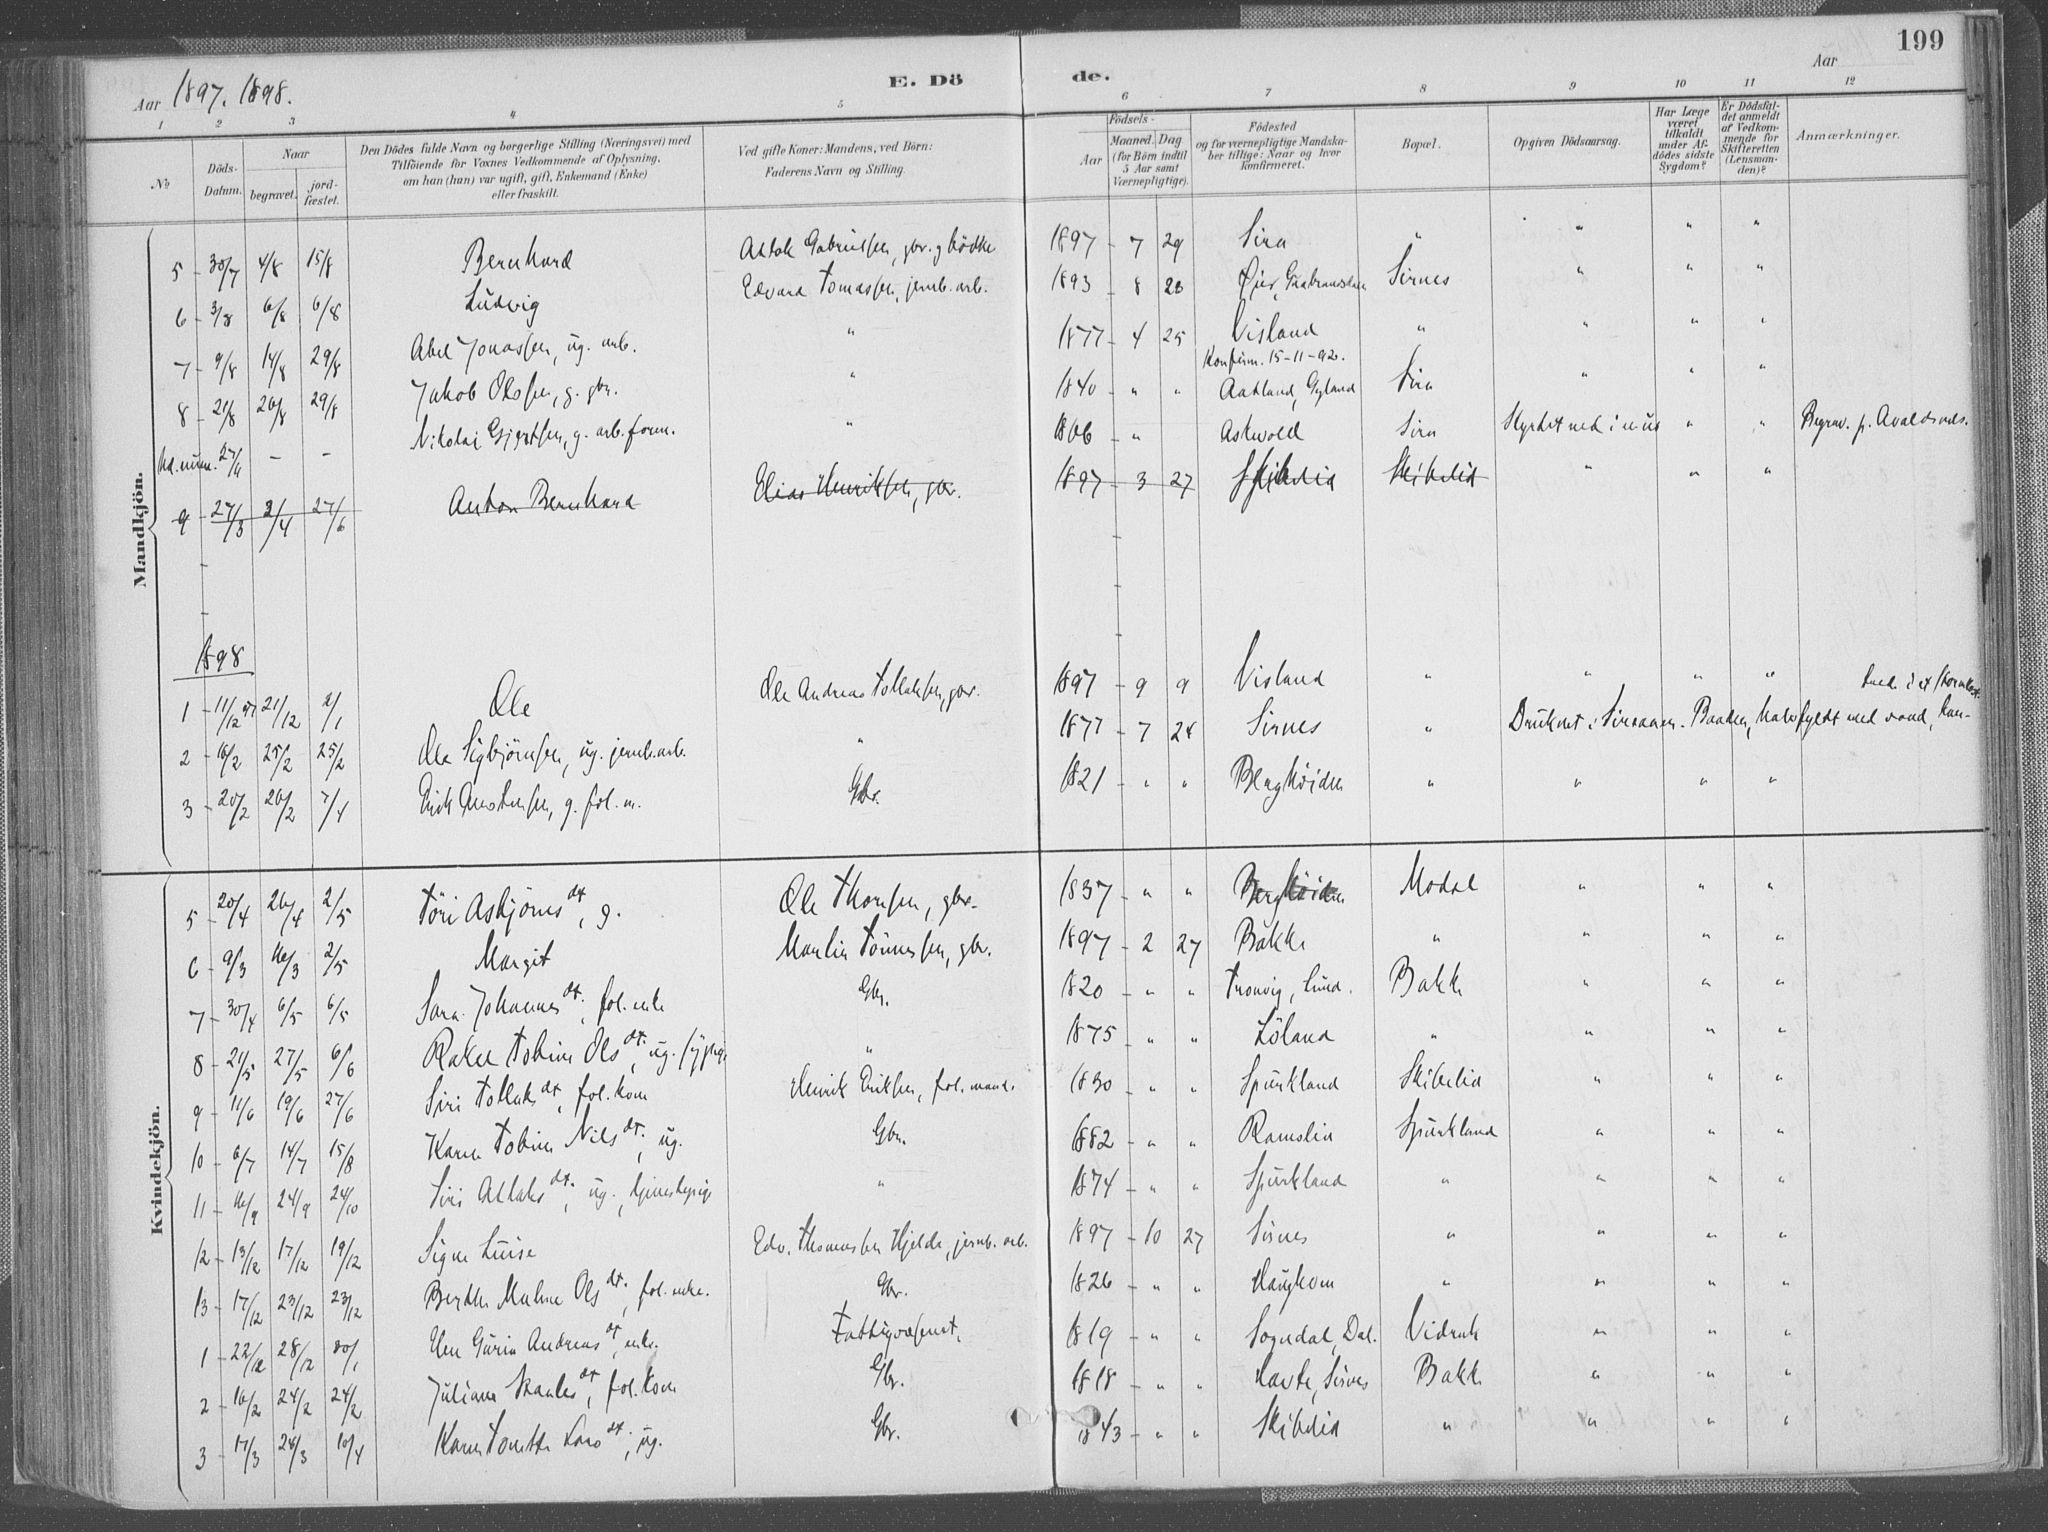 199
Aar 1897. 1898.
E. Dö
de.
Aar
1 2 3 4 5 6 7 8 9 10 11 12
No
Döds-Datum.
Naar
begravet.
jord-fæstet.
Den Dödes fulde Navn og borgerlige Stilling (Næringsvei) med
Tilföiende for Voxnes Vedkommende af Oplysning,
om han (hun) var ugift, gift, Enkemand (Enke)
eller fraskilt.
Ved gifte Koner: Mandens, ved Börn:
Faderens Navn og Stilling.
Födsels-
Aar
Maaned. Dag
(for Börn indtil
5 Aar samt
Værnepligtige).
Födested
og for værnepligtige Mandska-
ber tillige: Naar og hvor
konfirmeret.
Bopæl.
Opgiven Dödsaarsag.
Har Læge
været
tilkaldt
under Af-
dödes sidste
Sygdom?
Er Dödsfal-
det anmeldt
af Vedkom-
mende for
Skifteretten
(Lensman-
den)?
Anmærkninger.
Mandkjön.
5 30/7 4/8 15/8 Bernhard Atlak Gabrielsen, gbr. 1897 7 29 Sira " " " "
6 3/8 6/8 6/8 Ludvig Edvard Tomassen, jernb. arb. 1893 8 28 Öier, Gudbrandsdalen Sirnes " " "
7 9/8 14/8 29/8 Abel Jonassen, ug. arb. " 1877 4 25 Visland " " " "
Konfirm. 15-11-92.
8 21/8 26/8 29/8 Jakob Olssen, g. gbr. " 1840 " " Aatland, Gyland Sira " " "
27/11 - - Nikolai Gjertsen, g. arb. form. " 1866 " Askvold Sira Styrtet ned i " " Begrav. p. Avaldsnes.
9 27/3 2/4 27/6 Anton Bernhard Elias Henriksen, gbr. 1897 3 27 Skibelid Skibelid " " "
1898
1 11/12 97 21/12 2/1 Ole Ole Andreas Tollaksen, gbr. 1897 9 9 Visland " " " "
2 16/2 25/2 25/2 Ole Sigbjörnsen, ug. jernb. arb. " 1877 7 24 Sirnes " Druknet i Sireaaen. Baaden, halvfyldt med vand,
3 20/2 26/2 7/4 Erik g. fol. m. Gbr. 1821 " " Berghöiden " " " "
Kvindekjön.
5 20/4 26/4 2/5 Töri Asbjörnsdt, g. Ole Thorsen, gbr. 1837 " " Berghöiden Modal " " "
6 9/3 16/3 2/5 Margit Martin Tönnessen, gbr. 1897 2 27 Bakke " " " "
7 30/4 6/5 6/5 Sara Johannesdt., fol. enke Gbr. 1820 " " Tronvig, Lund. Bakke " " "
8 21/5 27/5 6/6 Rakel Tobine Olsdt., ug. " 1875 " " Löland " " " "
9 11/6 19/6 27/6 Siri Tollaksdt, fol. kone Henrik Eriksen, fol. mand. 1830 " " Spurkland Skibelid " " "
10 6/7 14/7 15/8 Karen Tobine Nilsdt., ug. Gbr. 1882 " " Ramslia Spurkland " " "
11 16/9 24/9 24/10 Siri Atlaksdt., ug., " 1874 " " Spurkland " " " "
12 13/12 17/12 19/12 Signe Luise Edv. Thomassen Hjelde, jernb. arb. 1897 10 27 Sirnes " " " "
13 17/12 23/12 23/12 Berthe Malene Olsdt., fol. enke. Gbr. 1826 " " Haughom " " " "
1 22/12 28/12 30/1 Gurine Andreasdt, enke. Fattigvæsenet. 1819 " " Sogndal, Dal. Vidrak " " "
2 16/2 24/2 24/2 Juliane dt, fol. kone Gbr. 1818 " " Sirnes Bakke " " "
3 17/3 24/3 10/4 Karen Tonette Larsdt., ug. Gbr. 1843 " " Skibelid " " " "